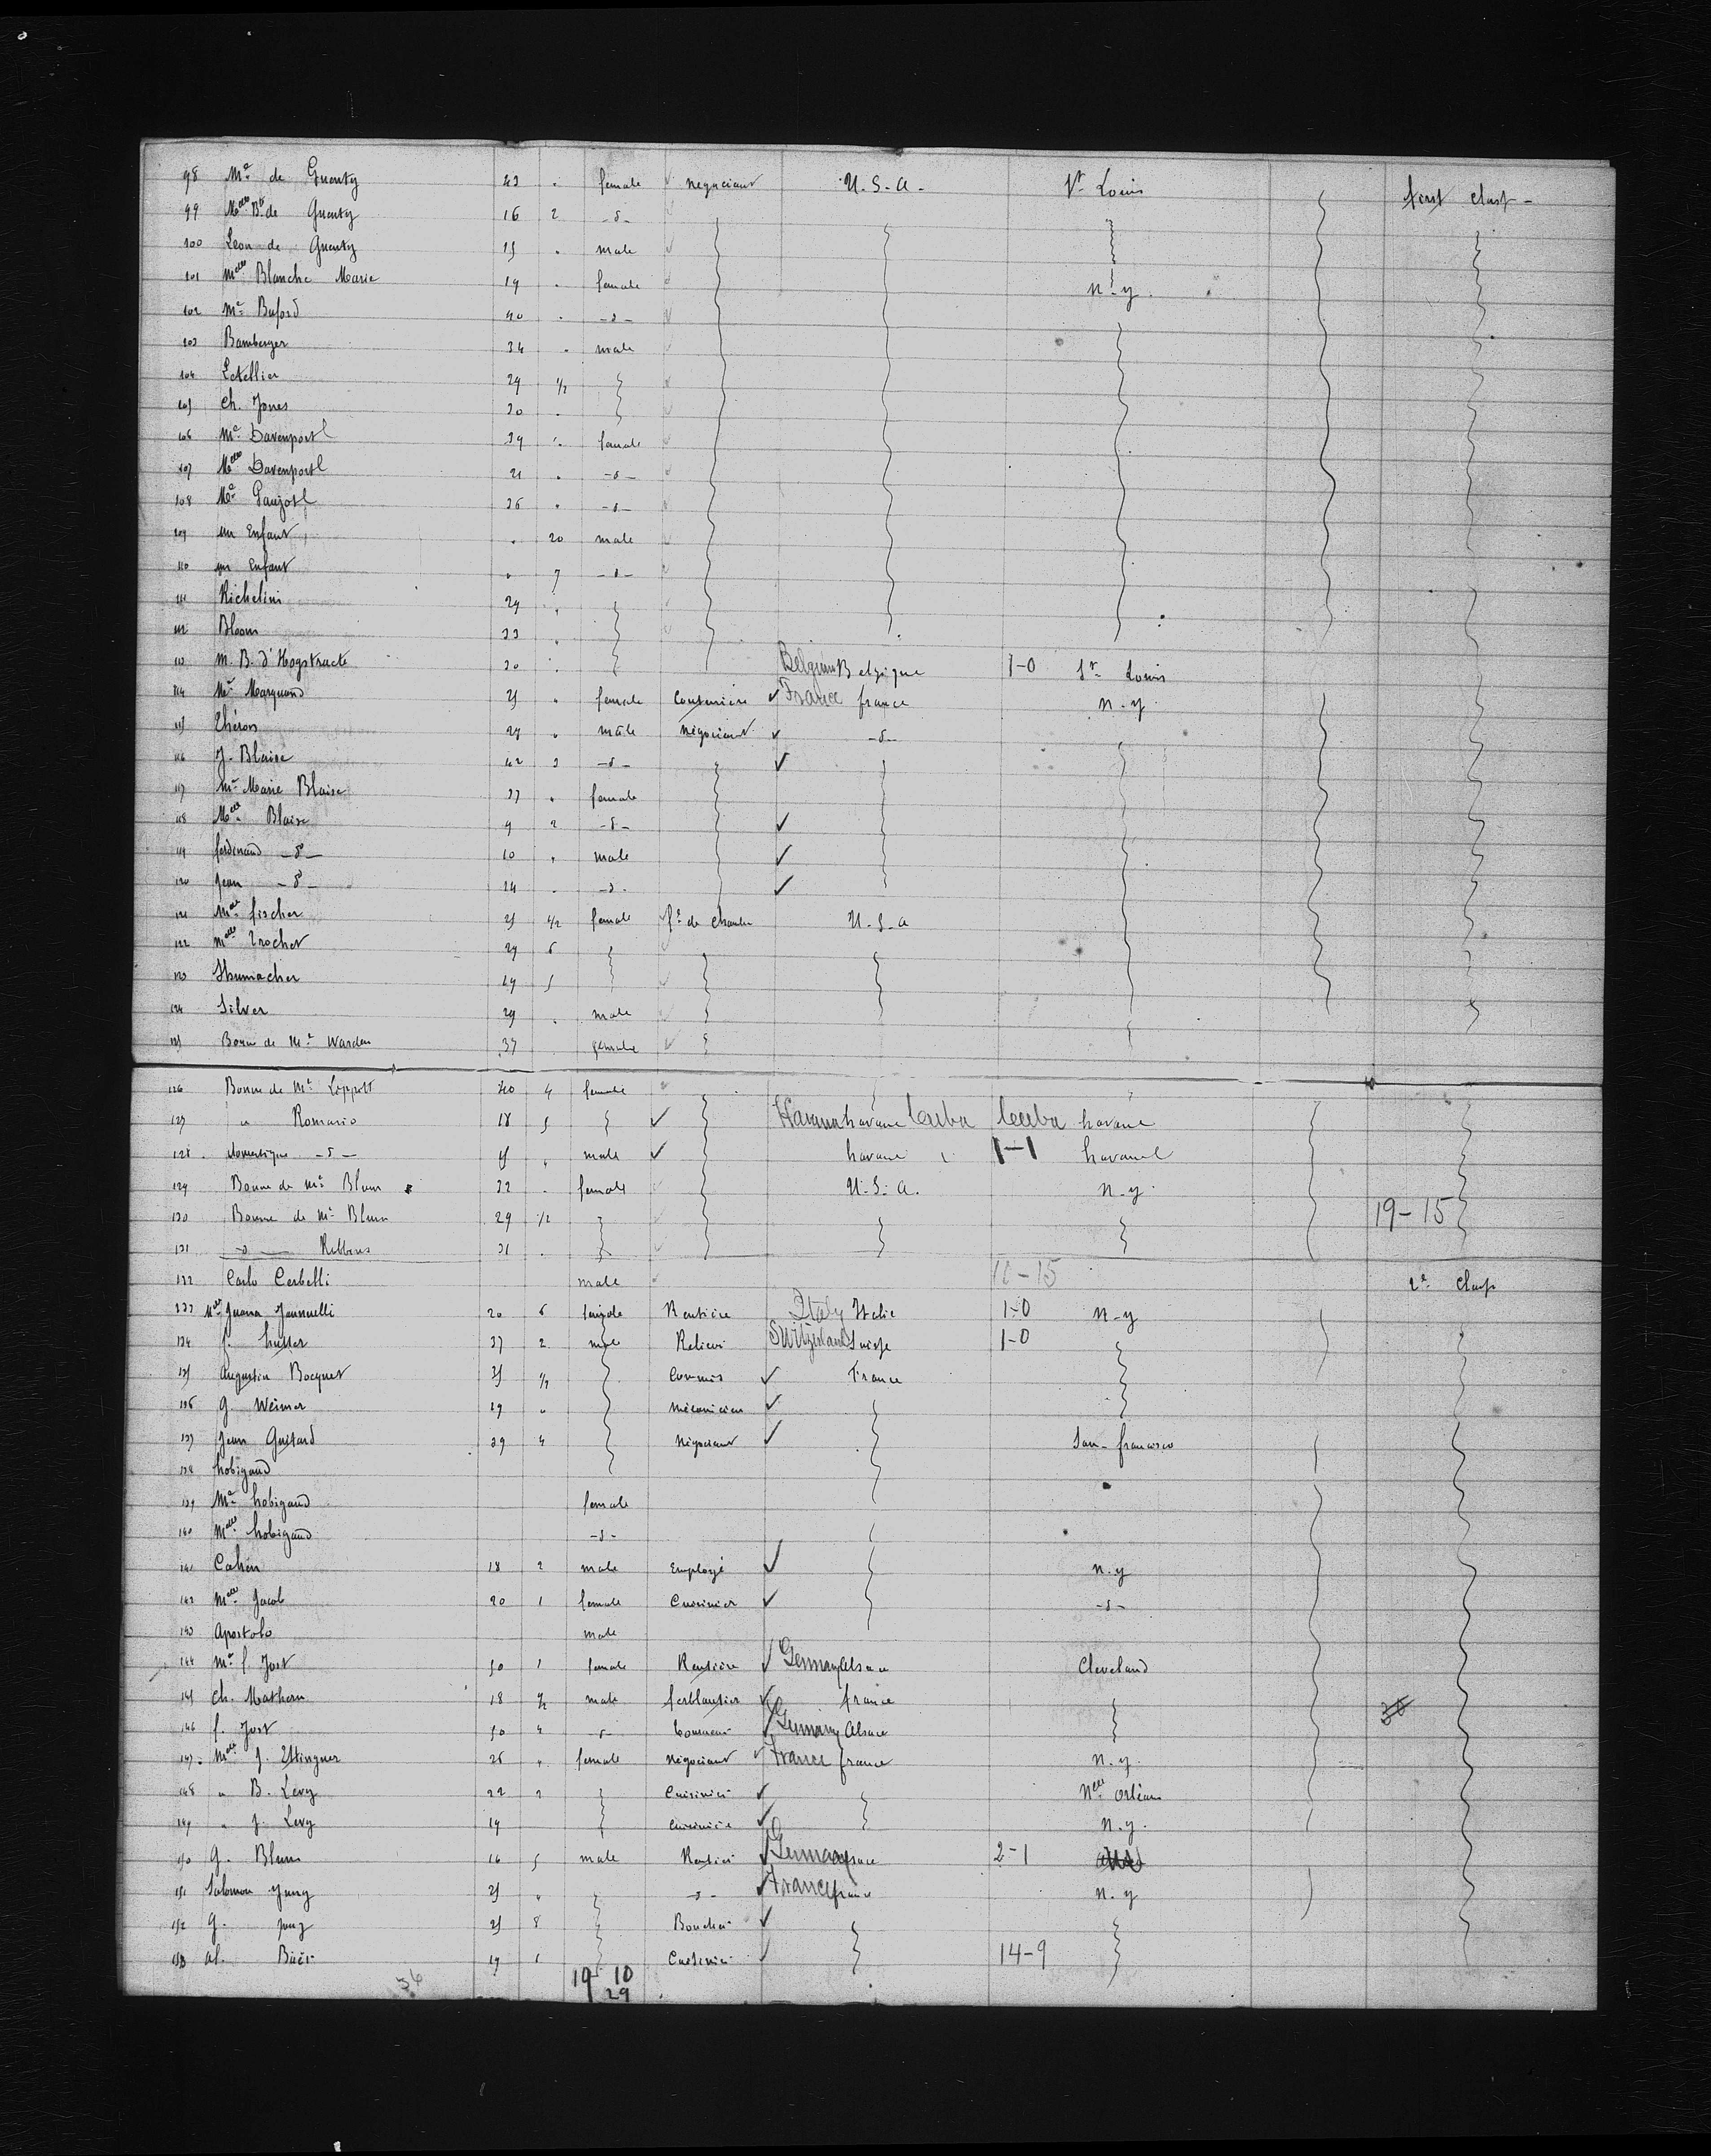 98 Me de Guenty 42 . female negociant U. S. A. St Louis first class
99 Melle Bte de Guenty 16 2 -d-
100 Leon de Guenty 15 . male
101 Melle Blanche Marie 19 . female n-y.
102 Me Buford 40 . -d-
103 Bamberger 34 . male
104 Letellier 29 1/2
105 Ch. Jones 20 .
106 Me Davenport 39 . female
107 Melle Davenport 21 . -d-
108 Me Paujot 36 . -d-
109 un Enfant . 20 male
110 un Enfant . 7 -d-
111 Richelini 24 .
112 Bloom 33 .
113 M. B. d'Hogstracte 30 . Belgium Belgique 1-0 St Louis
114 Me Marquand 25 . female Couturière France france n-y
115 Théron 24 . male négociant -d-
116 J. Blaise 42 3 -d-
117 Me Marie Blaise 37 . female
118 Melle Blaise 9 2 -d-
119 ferdinand -do- 10 . male
120 Jean -do- 14 . -d-
121 Melle fischer 25 1/2 female fe de chambre U-S-a
122 Melle Trochet 29 6
123 Shumacher 19 5
124 Silver 29 . male
125 Bonne de Me Warden 37 female
126 Bonne de Me Lippitt 40 4 female
127 " Romario 18 5 Havana havane Cuba Cuba havane
128 domestique -d- 45 . male havane 1-1 havane
129 Bonne de Me Blum 32 . female U-S-a. n-y.
130 Bonne de Me Blum 29 1/2 19-15
131 -d- Robbins 31 .
132 Carlo Cerbelli male 10-15 2e Class
133 Melle Juana Jannuelli 20 6 female Rentière Italy Italie 1-0 n-y
134 f. hutter 37 2 male Relieur Switzerland Suisse 1-0
135 Augustin Bocquet 35 1/2 Commis France
136 G. Weimer 29 " mécanicien
137 Jean Guitard 39 4 négociant San-francisco
138 hobigand
139 Me hobigand female
140 Melle hobigand -d-
141 Cahen 18 2 male Employé n.y
142 Melle Jacob 20 1 female Cuisinier -d-
143 Apostolo male
144 Me f. Jost 50 1 female Rentière Germany Alsace Cleveland
145 Ch. Mathern 18 1/2 male ferblantier france
146 f. Jost 50 4 -d- tonneur Germany Alsace
147 Melle J. Ettinguer 26 " female négociant France france n.y.
148 " B. Levy 22 2 Cuisinier Nelle Orléans
149 " J. Levy 19 Cuisinière n.y.
150 G. Blum 16 5 male Rentier Germany Alsace 2-1
151 Salomon Jung 25 " -d- France france n.y
152 G. Jung 25 8 Boucher
153 Al. Baër 19 1 Cuisinier 14-9
36 19 10
29